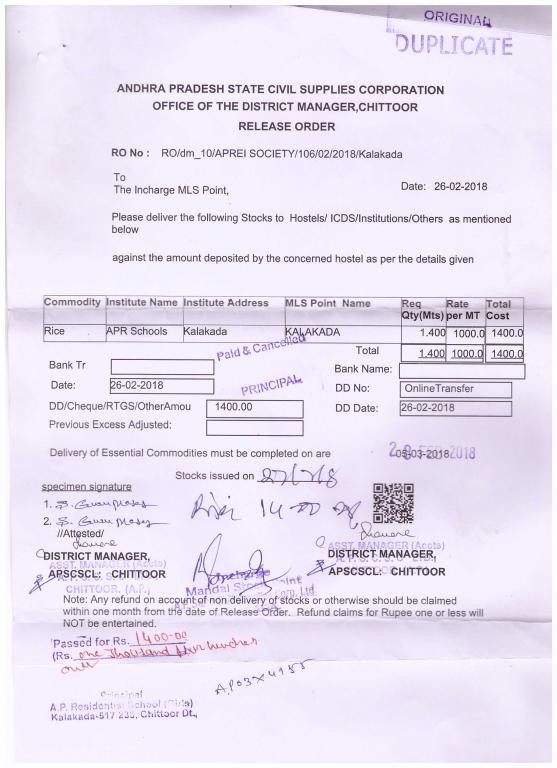 ORIGINAL
DUPLICATE
ANDHRA PRADESH STATE CIVIL SUPPLIES CORPORATION
OFFICE OF THE DISTRICT MANAGER,CHITTOOR
RELEASE ORDER
RO No : RO/dm_10/APREI SOCIETY/106/02/2018/Kalakada
To
The Incharge MLS Point,
Date: 26-02-2018
Please deliver the following Stocks to Hostels/ ICDS/Institutions/Others as mentioned
below
against the amount deposited by the concerned hostel as per the details given
Commodity Institute Name Institute Address MLS Point Name Req Qty(Mts) Rate per MT Total Cost
Rice APR Schools Kalakada KALAKADA 1.400 1000.0 1400.0
Total 1.400 1000.0 1400.0
Paid & Cancelled
PRINCIPAL
Bank Tr
Bank Name:
Date: 26-02-2018
DD No: OnlineTransfer
DD/Cheque/RTGS/OtherAmou 1400.00
DD Date: 26-02-2018
Previous Excess Adjusted:
Delivery of Essential Commodities must be completed on are 05-03-2018
2018
Stocks issued on
specimen signature
1.
2.
//Attested/
DISTRICT MANAGER,
APSCSCL: CHITTOOR
ASST. MANAGER (Accts)
CHITTOOR. (A.P.)
Mandal Stock Point
DISTRICT MANAGER,
APSCSCL: CHITTOOR
ASST. MANAGER (Accts)
Note: Any refund on account of non delivery of stocks or otherwise should be claimed
within one month from the date of Release Order. Refund claims for Rupee one or less will
NOT be entertained.
Passed for Rs. 1400-00
(Rs. one Thousand four hundred
only
AP03X4155
Principal
A.P. Residential School (Girls)
Kalakada-517 236, Chittoor Dt.,